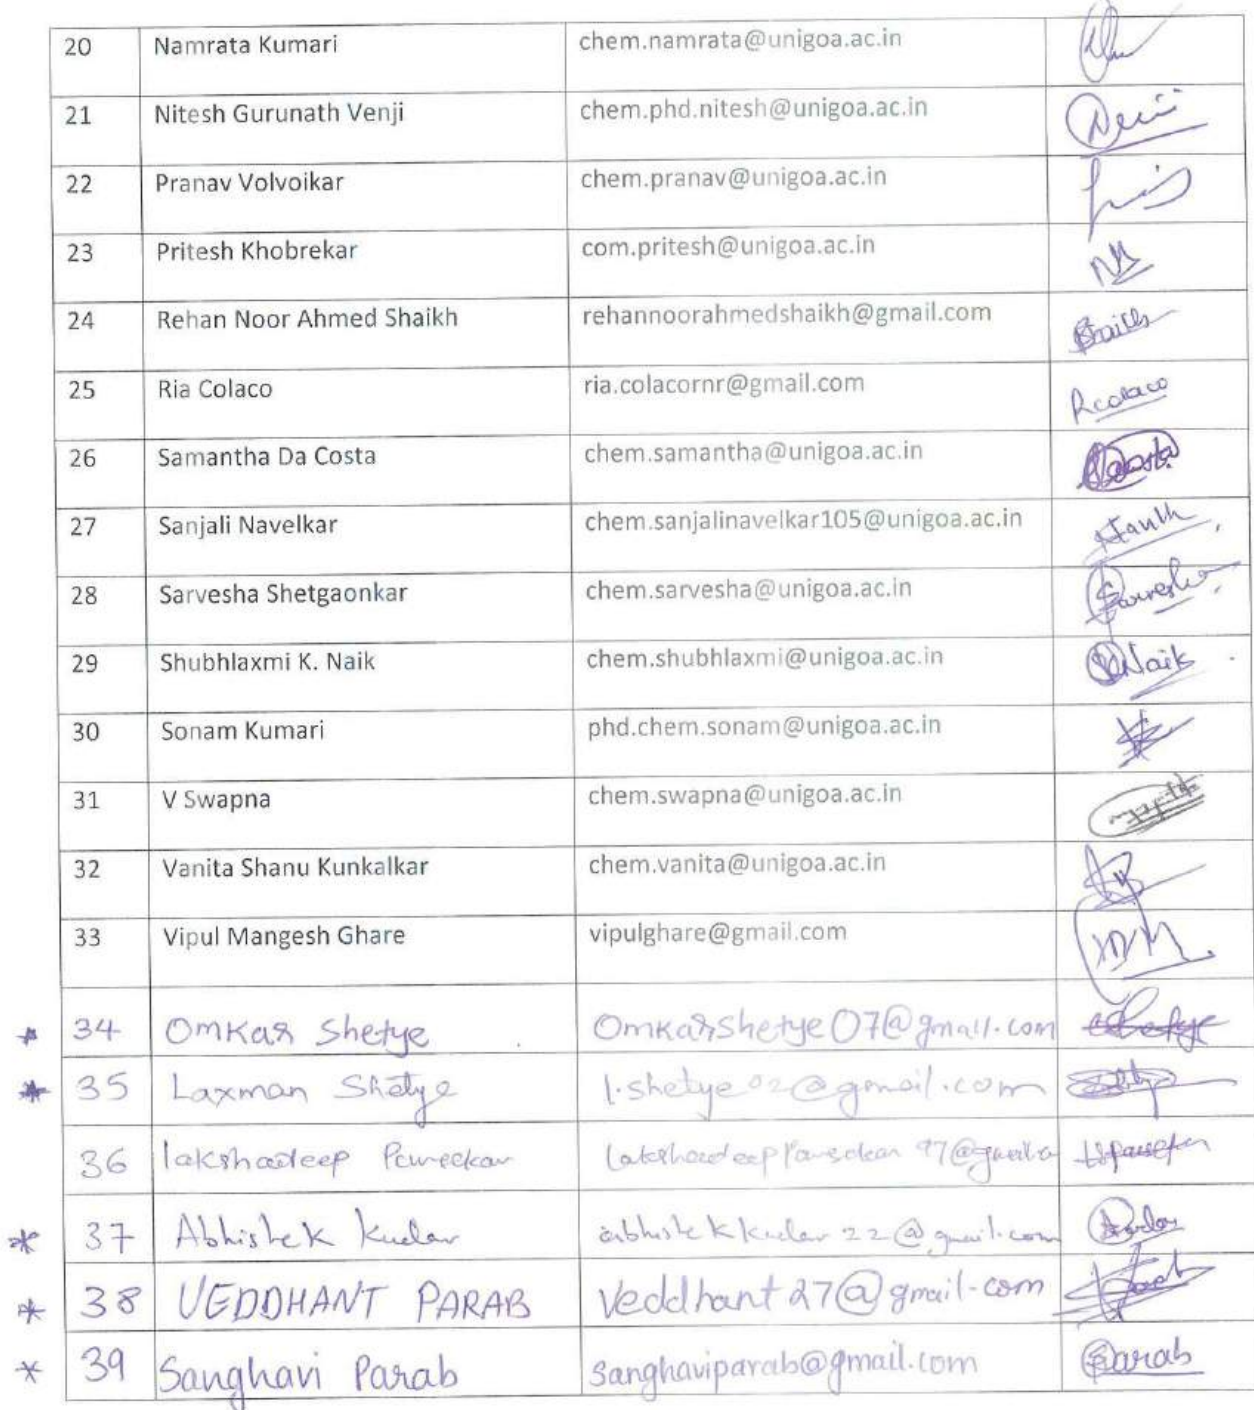 20 Namrata Kumari chem.namrata@unigoa.ac.in
21 Nitesh Gurunath Venji chem.phd.nitesh@unigoa.ac.in
22 Pranav Volvoikar chem.pranav@unigoa.ac.in
23 Pritesh Khobrekar com.pritesh@unigoa.ac.in
24 Rehan Noor Ahmed Shaikh rehannoorahmedshaikh@gmail.com Shaikh
25 Ria Colaco ria.colacornr@gmail.com Rcolaco
26 Samantha Da Costa chem.samantha@unigoa.ac.in
27 Sanjali Navelkar chem.sanjalinavelkar105@unigoa.ac.in
28 Sarvesha Shetgaonkar chem.sarvesha@unigoa.ac.in Sarvesha
29 Shubhlaxmi K. Naik chem.shubhlaxmi@unigoa.ac.in Naik
30 Sonam Kumari phd.chem.sonam@unigoa.ac.in
31 V Swapna chem.swapna@unigoa.ac.in
32 Vanita Shanu Kunkalkar chem.vanita@unigoa.ac.in
33 Vipul Mangesh Ghare vipulghare@gmail.com
* 34 Omkar Shetye Omkarshetye07@gmail.com Shetye
* 35 Laxman Shetye l.shetye02@gmail.com
36 lakshadeep
* 37 Abhishek Kudav abhishekkudav22@gmail.com Kudav
* 38 VEDDHANT PARAB Veddhant27@gmail.com
* 39 Sanghavi Parab sanghaviparab@gmail.com Parab